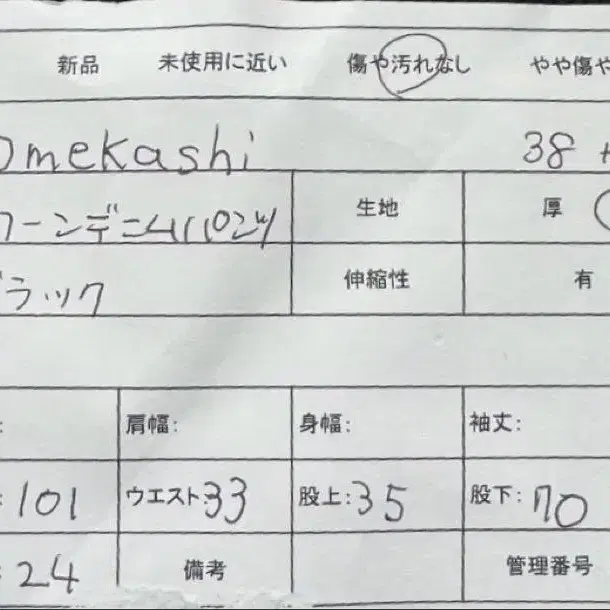 新品 未使用に近い 傷や汚れなし やや傷や
omekashi 38
ーンデニムパンツ 生地 厚
ラック 伸縮性 有
: 肩幅: 身幅: 袖丈:
: 101 ウエスト:33 股上:35 股下:70
: 24 備考 管理番号